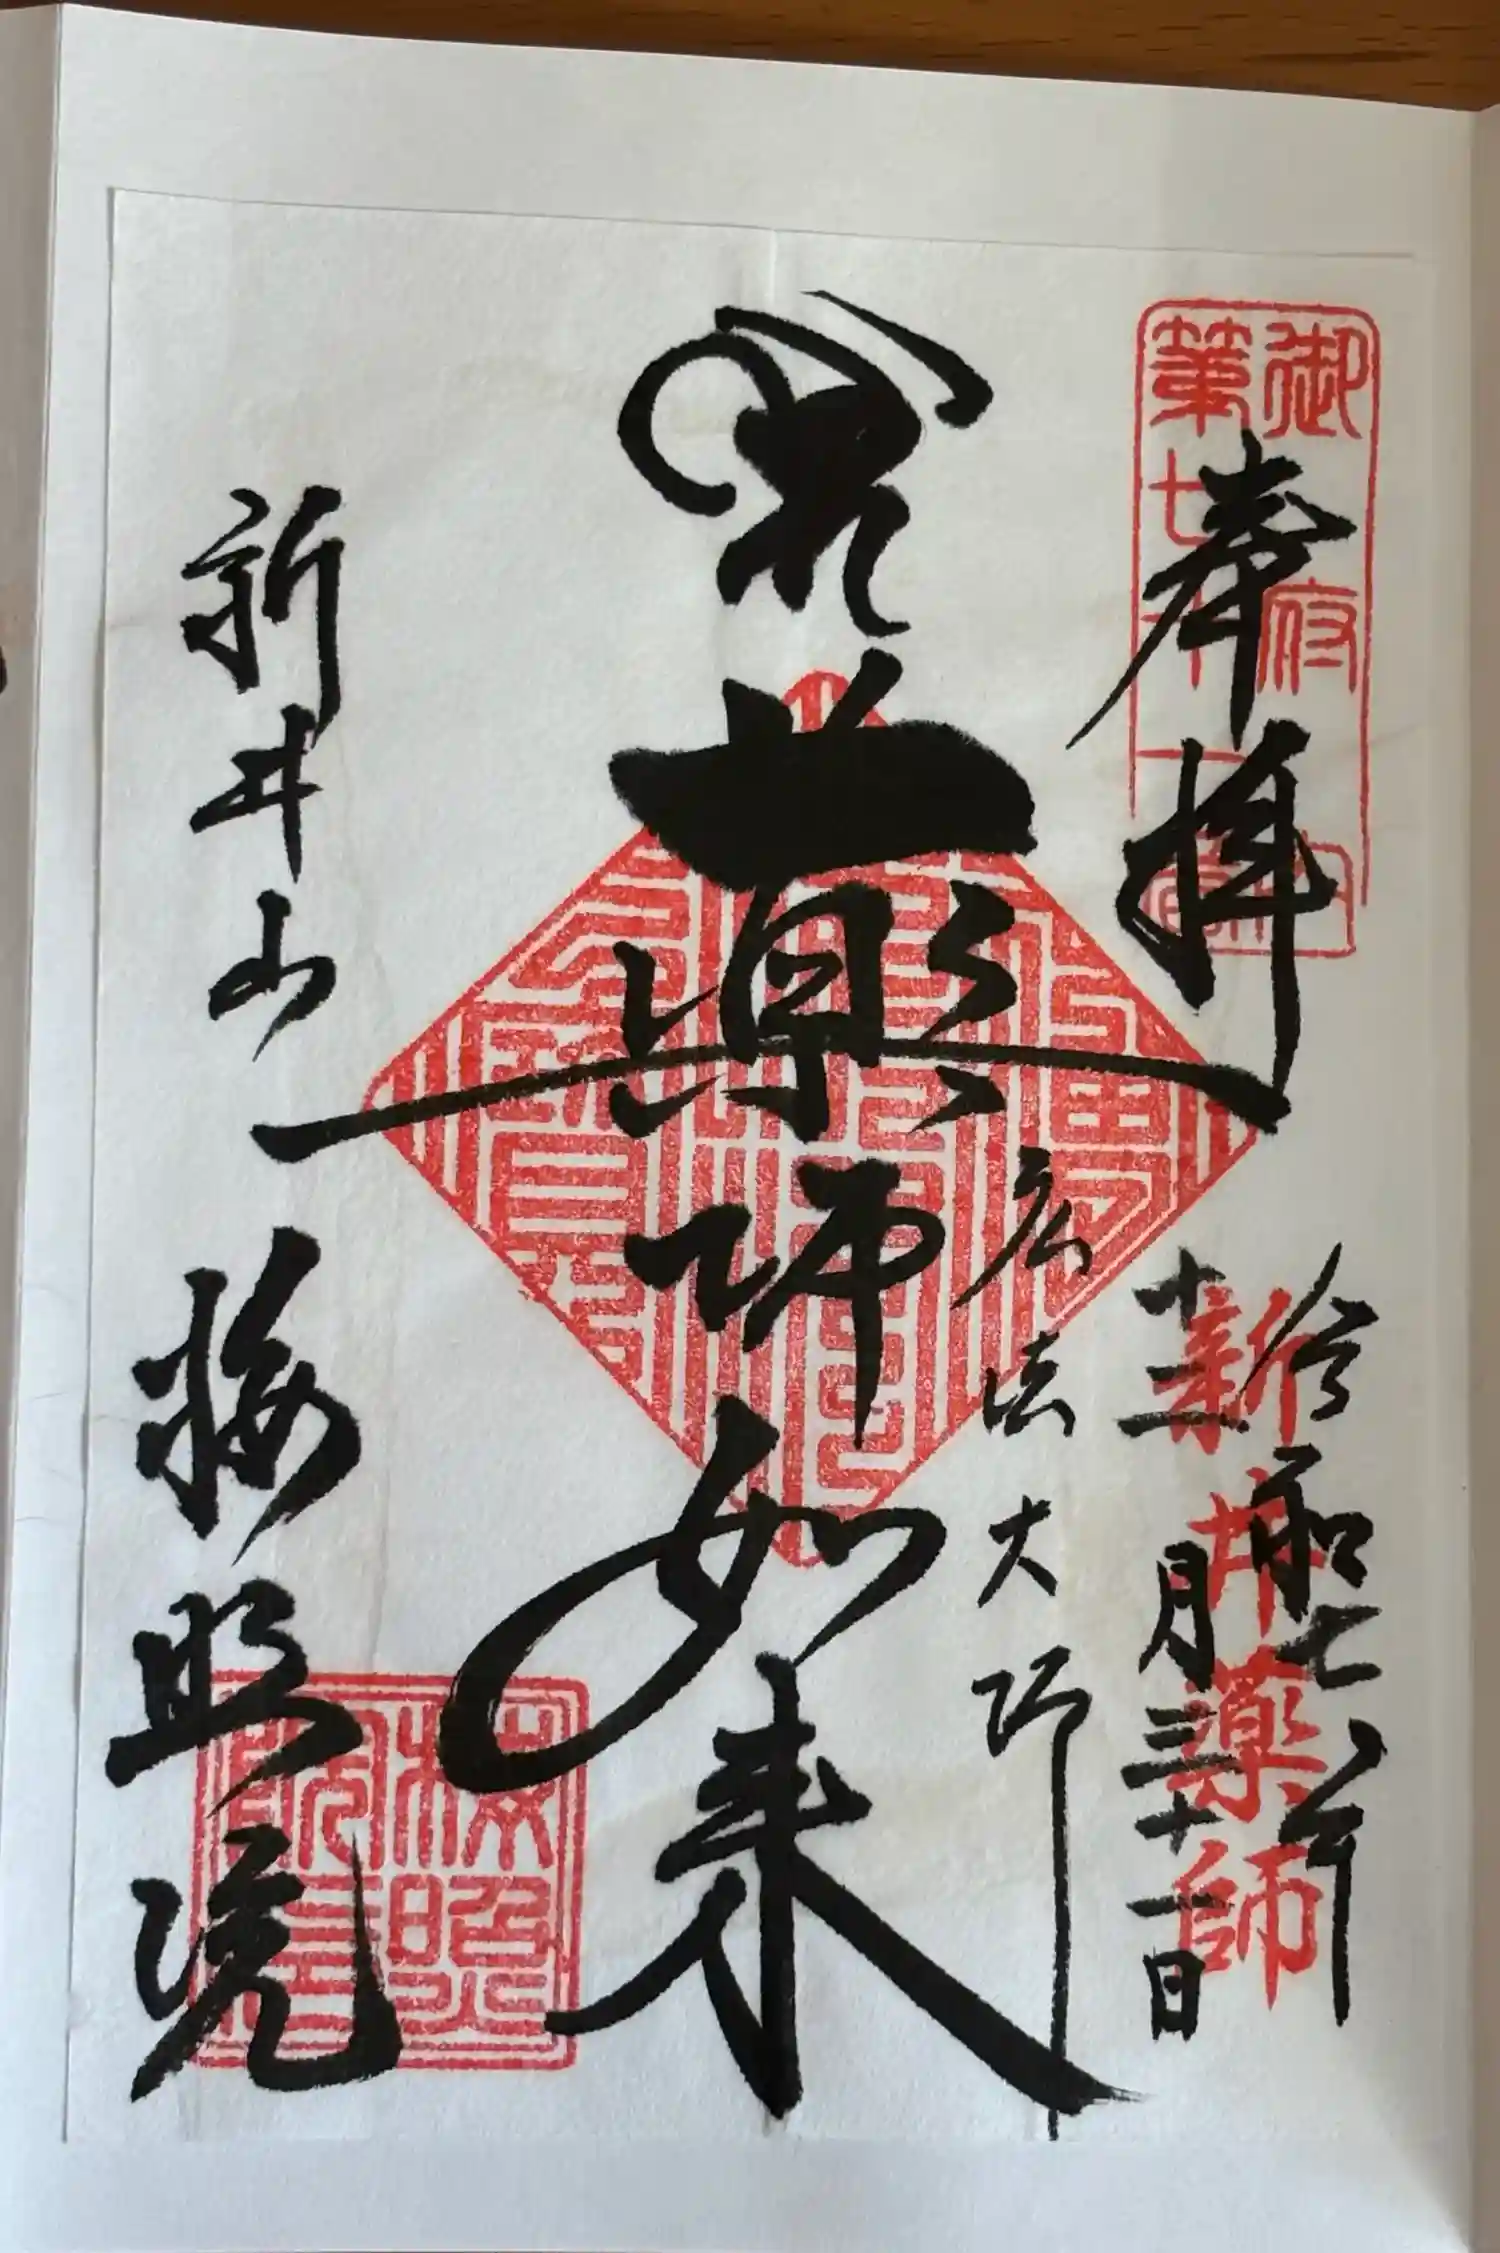 奉拝
御府内
第七十一番
令和七年
十二月三十一日
新井薬師
薬師如来
弘法大師
新井山
梅照院